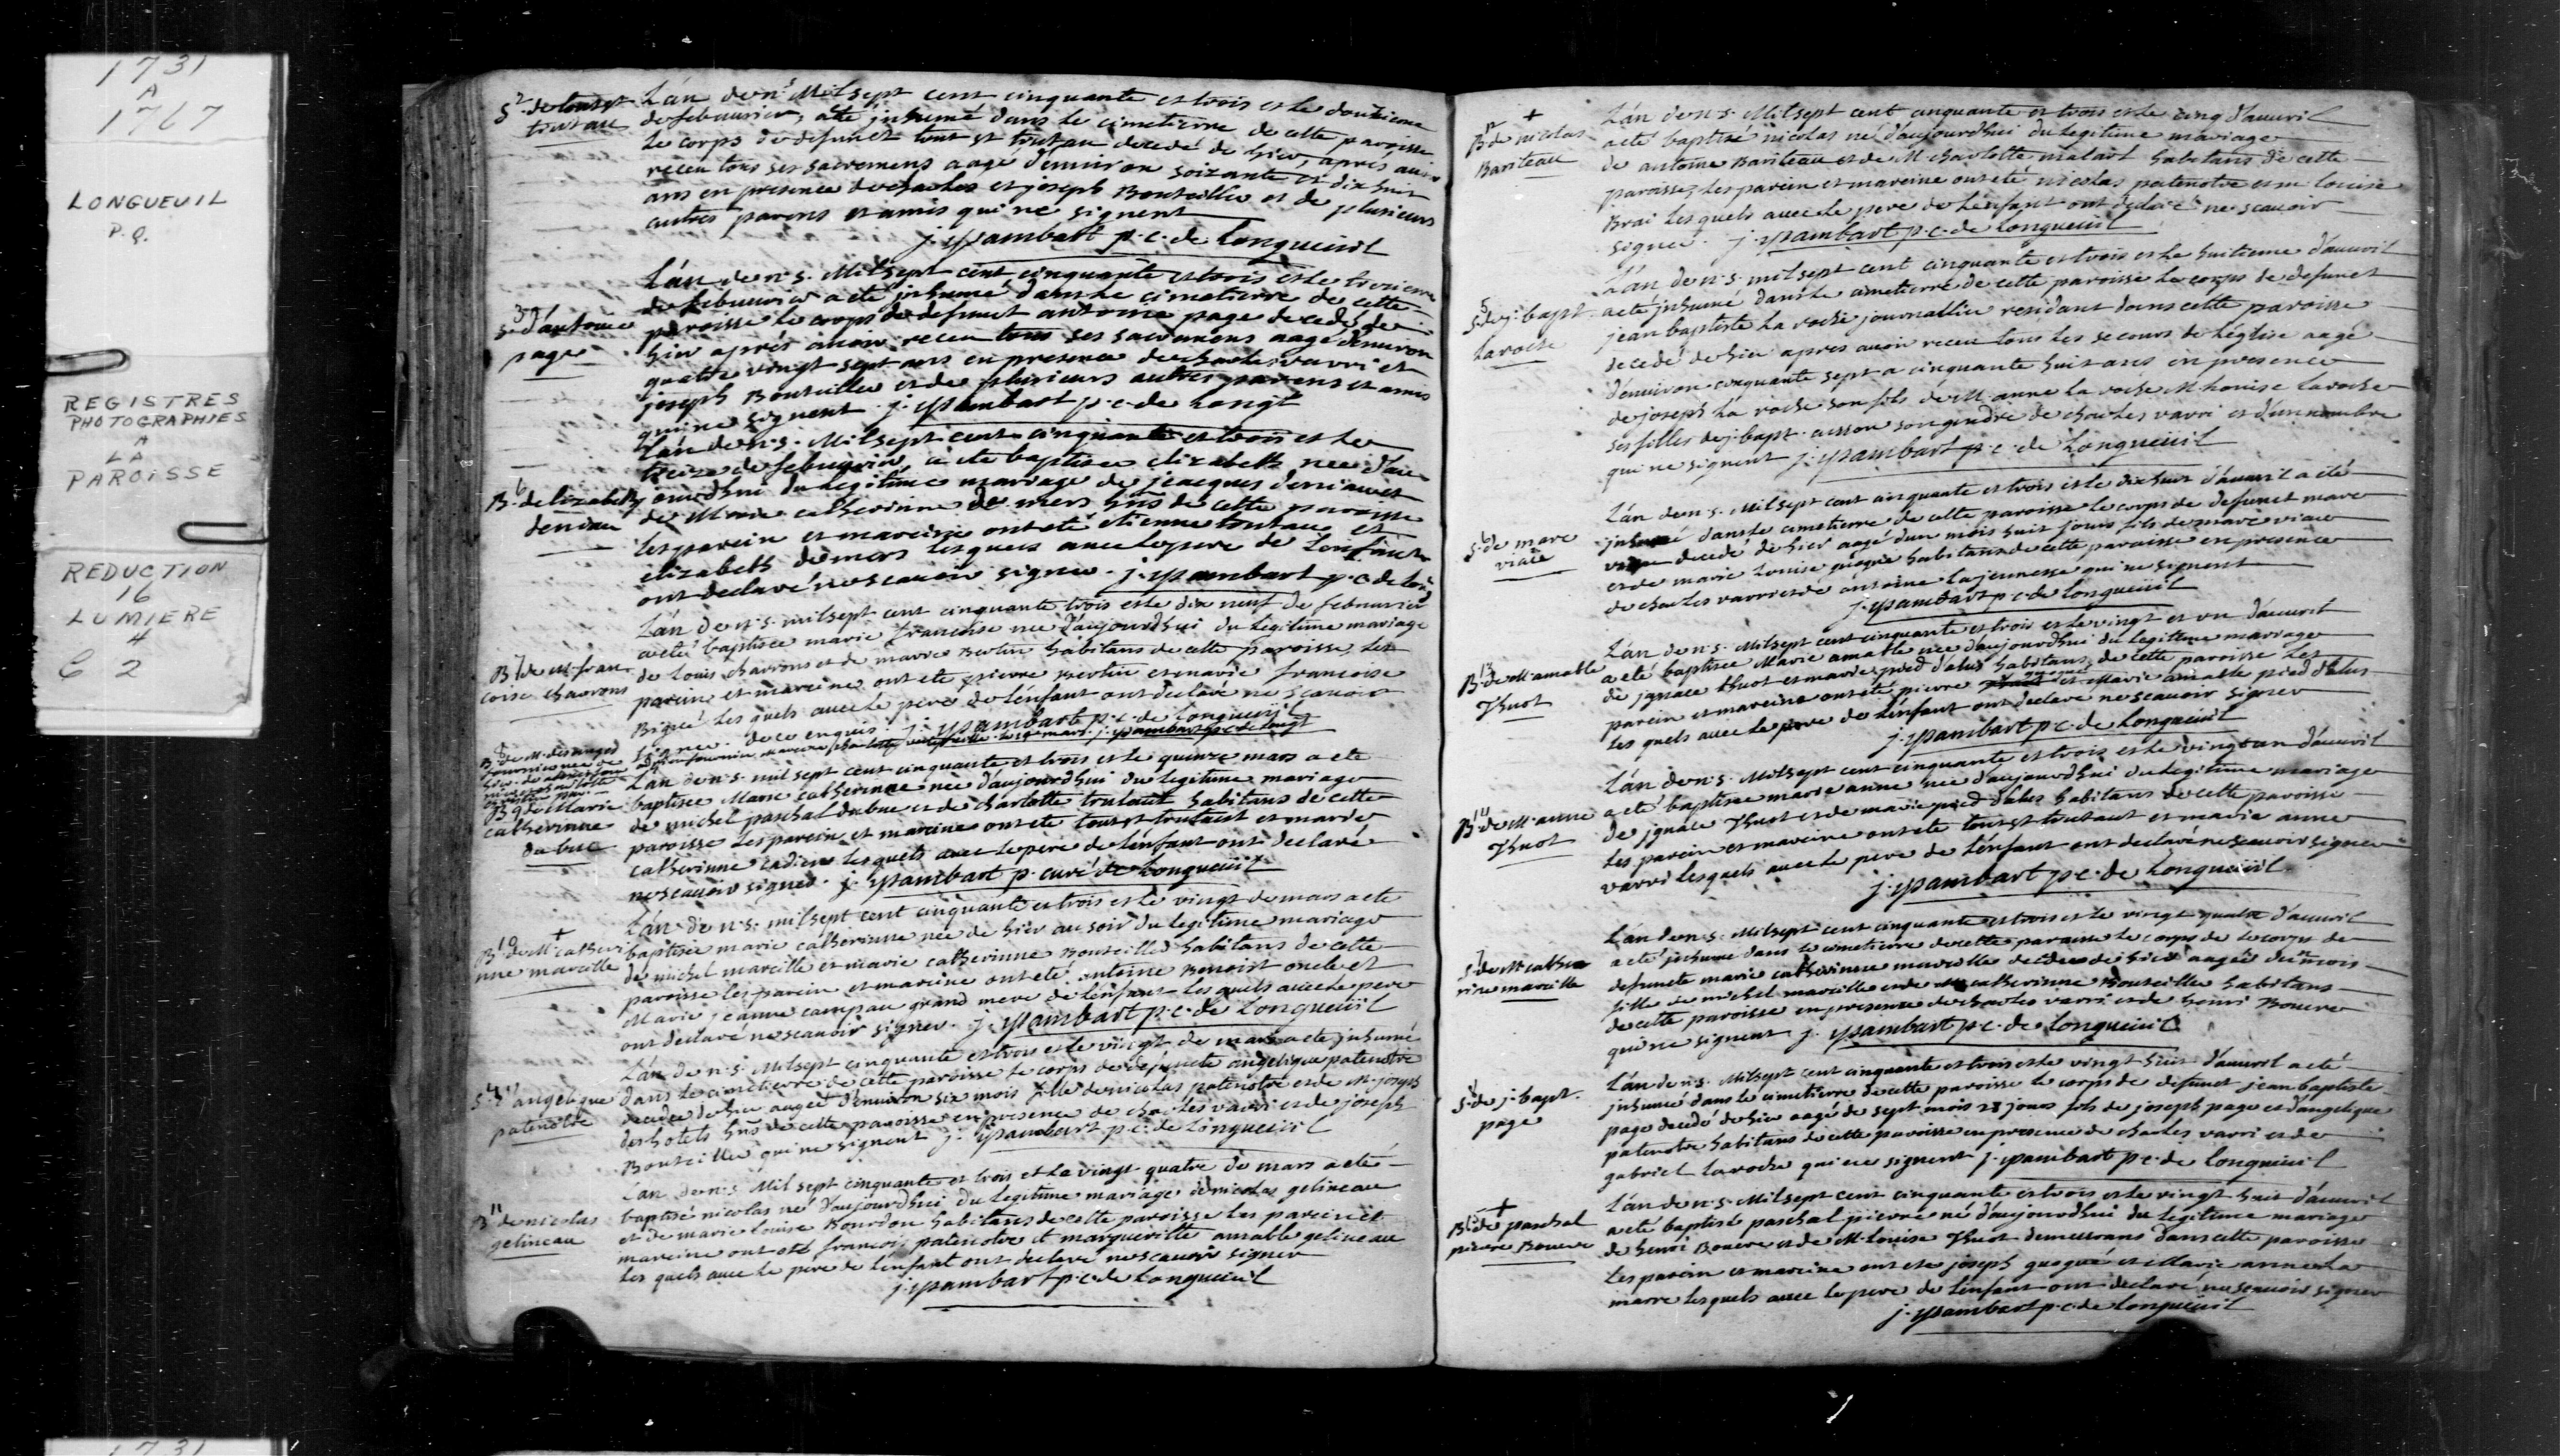 1731
A
1767
LONGUEUIL
P.Q.
REGISTRES
PHOTOGRAPHIES
A
LA
PAROISSE
REDUCTION
16
LUMIERE
4
C 2
1731
S. 2 de toust
trutau
L'án de n.s. Mil sept cent cinquante et trois et le douzieme
de febuurier, a été jnhumé dans le cimetierre de cette paroisse
le corps de defunct toust trutau decedé de hier, après auoir
receu tous ses sacremens aagé d'enuiron soixante et dix huit
ans en presence de charles et joseph Bouteiller et de plusieurs
autres parens et amis qui ne signent
j. ysambart p.c. de Longueüil
S. 3 d'antoine
page
L'án de n.s. Mil sept cent cinquante et trois et le treizieme
de febuurier a eté jnhumé dans le cimetierre de cette
paroisse le corps de defunct antoine page decedé de
hier après auoir receu tous ses sacremens aagé d'enuiron
quatre vingt sept ans en presence de charles varri et
joseph Bouteiller et de plusieurs autres parens et amis
qui ne signent. j. ysambart p.c. de Longl
B. 6 d'elizabeth
deniau
L'án de n.s. Mil sept cent cinquante et trois et le
treize de febuurier, a eté baptisee elizabeth nee d'au
jourdhui du legitime mariage de jacques deniau et
de Marie catherinne de mers hns de cette paroisse
les parein et mareine ont eté etienne trutau et
elizabeth de mers lesquels auec le pere de l'enfant
ont declaré ne scauoir signer. j. ysambart p.c. de Long
B. 7 de M. fran
coise charrons
L'án de n.s. mil sept cent cinquante trois et le dix neuf de febuurier
a eté baptisee marie francoise nee d'aujourdhui du legitime mariage
de Louis charrons et de marie Bertin habitans de cette paroisse, les
parein et mareine ont eté pierre Bertin et marie francoise
Bigué les quels auec le pere de l'enfant ont declaré ne scauoir
signer de ce enquis. j. ysambart p.c. de Longueüil
B. 8 de M. desanges
fournier nee de
B. 9 de Marie
catherinne
dubuc
L'án de n.s. mil sept cent cinquante et trois et le quinze mars a eté
baptisee Marie catherinne née d'aujourdhui du legitime mariage
de michel paschal dubuc et de charlotte trutaut habitans de cette
paroisse les parein et mareine ont eté toust trutaut et marie
catherinne cadieu lesquels auec le pere de l'enfant ont declaré
ne scauoir signer. j. ysambart p. curé de Longueüil
+
B. 10 de M. catheri
nne marcille
L'án de n.s. mil sept cent cinquante et trois et le vingt de mars a eté
baptisee marie catherinne nee de hier au soir du legitime mariage
de michel marcille et marie catherinne Bouteiller habitans de cette
paroisse les parein et mareine ont eté antoine Benoist oncle et
Marie jeanne campau grand mere de l'enfant les quels auec le pere
ont declaré ne scauoir signer. j. ysambart p.c. de Longueüil
S. 4 d'angelique
patenotre
L'án de n.s. Mil sept cinquante et trois et le vingt de mars a eté jnhumé
dans le cimetierre de cette paroisse le corps de defuncte angelique patenotre
decedee de hier aagee d'enuiron six mois fille de nicolas patenotre et de M. joseph
des hotels hns de cette paroisse en presence de charles varri et de joseph
Bouteiller qui ne signent j. ysambart p.c. de Longueüil
B. 11 de nicolas
gelineau
L'an de n.s. Mil sept cinquante et trois et le vingt quatre de mars a eté
baptisé nicolas né d'aujourdhui du legitime mariage de nicolas gelineau
et de marie louise Bourdon habitans de cette paroisse les parein et
mareine ont eté francois patenotre et margueritte amable gelineau
les quels auec le pere de l'enfant ont declaré ne scauoir signer
j. ysambart p.c. de Longueüil
+
B. 12 de nicolas
Bariteau
L'án de n.s. Mil sept cent cinquante et trois et le cinq d'auuril
a eté baptisé nicolas né d'aujourdhui du legitime mariage
de antoine Bariteau et de M. charlotte malart habitans de cette
paroisse, les parein et mareine ont eté nicolas patenotre et m louise
Brai les quels auec le pere de l'enfant ont declaré ne scauoir
signer. j. ysambart p.c. de Longueüil
S. 5 de j. bapt.
Laroche
L'án de n.s. mil sept cent cinquante et trois et le huitieme d'auuril
a eté jnhumé dans le cimetierre de cette paroisse le corps de defunct
jean baptiste La roche journallier residant dans cette paroisse
decedé de hier apres auoir receu tous les secours de l'église aagé
d'enuiron cinquante sept a cinquante huit ans en presence
de joseph La roche son fils de M. anne La roche M. Louise Laroche
ses filles de j. bapt. cusson son gendre de charles varri et d'un nombre
qui ne signent j. ysambart p.c. de Longueüil
S. 6 de marc
viau
L'án de n.s. Mil sept cent cinquante et trois et le dix huit d'auuril a eté
jnhumé dans le cimetierre de cette paroisse le corps de defunct marc
viau decedé de hier aagé d'un mois huit jours fils de marc viau
et de marie Louise habitans de cette paroisse en presence
de charles varri et de antoine Lajeunesse qui ne signent
j. ysambart p.c. de Longueüil
B. 13 de M. amable
Thuot
L'án de n.s. Mil sept cent cinquante et trois et le vingt et un d'auuril
a eté baptisee Marie amable nee d'aujourdhui du legitime mariage
de jgnace thuot et marie pied d'alus habitans de cette paroisse les
parein et mareine ont eté pierre et Marie amable pied d'alus
les quels auec le pere de l'enfant ont declaré ne scauoir signer
j. ysambart p.c. de Longueüil
B. 14 de M. anne
Thuot
L'án de n.s. Mil sept cent cinquante et trois et le vingt un d'auuril
a eté baptisee marie anne nee d'aujourdhui du legitime mariage
de jgnace Thuot et de marie pied d'alus habitans de cette paroisse
les parein et mareine ont eté toust trutaut et marie anne
varri lesquels auec le pere de l'enfant ont declaré ne scauoir signer
j. ysambart p.c. de Longueüil
S. 7 de M. cathe
rine marcille
L'án de n.s. Mil sept cent cinquante et trois et le vingt quatre d'auuril
a eté jnhumé dans le cimetierre de cette paroisse le corps de le corps de
defuncte marie catherinne marcille decedee de hier aagee d'un mois
fille de michel marcille et de M catherinne Bouteiller habitans
de cette paroisse en presence de charles varri et de henri Bouere
qui ne signent j. ysambart p.c. de Longueüil
S. 8 de j. bapt.
page
L'án de n.s. Mil sept cent cinquante et trois et le vingt huit d'auuril a eté
jnhumé dans le cimetierre de cette paroisse le corps de defunct jean baptiste
page decedé de hier aagé de sept mois 28 jours fils de joseph page et d'angelique
patenotre habitans de cette paroisse en presence de charles varri et de
gabriel Laroche qui ne signent j. ysambart p.c. de Longueüil
+
B. 15 de paschal
pierre Bouere
L'án de n.s. Mil sept cent cinquante et trois et le vingt huit d'auuril
a eté baptisé paschal pierre né d'aujourdhui du legitime mariage
de henri Bouere et de M. Louise Thuot demeurans dans cette paroisse
les parein et mareine ont eté joseph guogué et Marie anne La
marre lesquels auec le pere de l'enfant ont declaré ne scauoir signer
j. ysambart p.c. de Longueüil